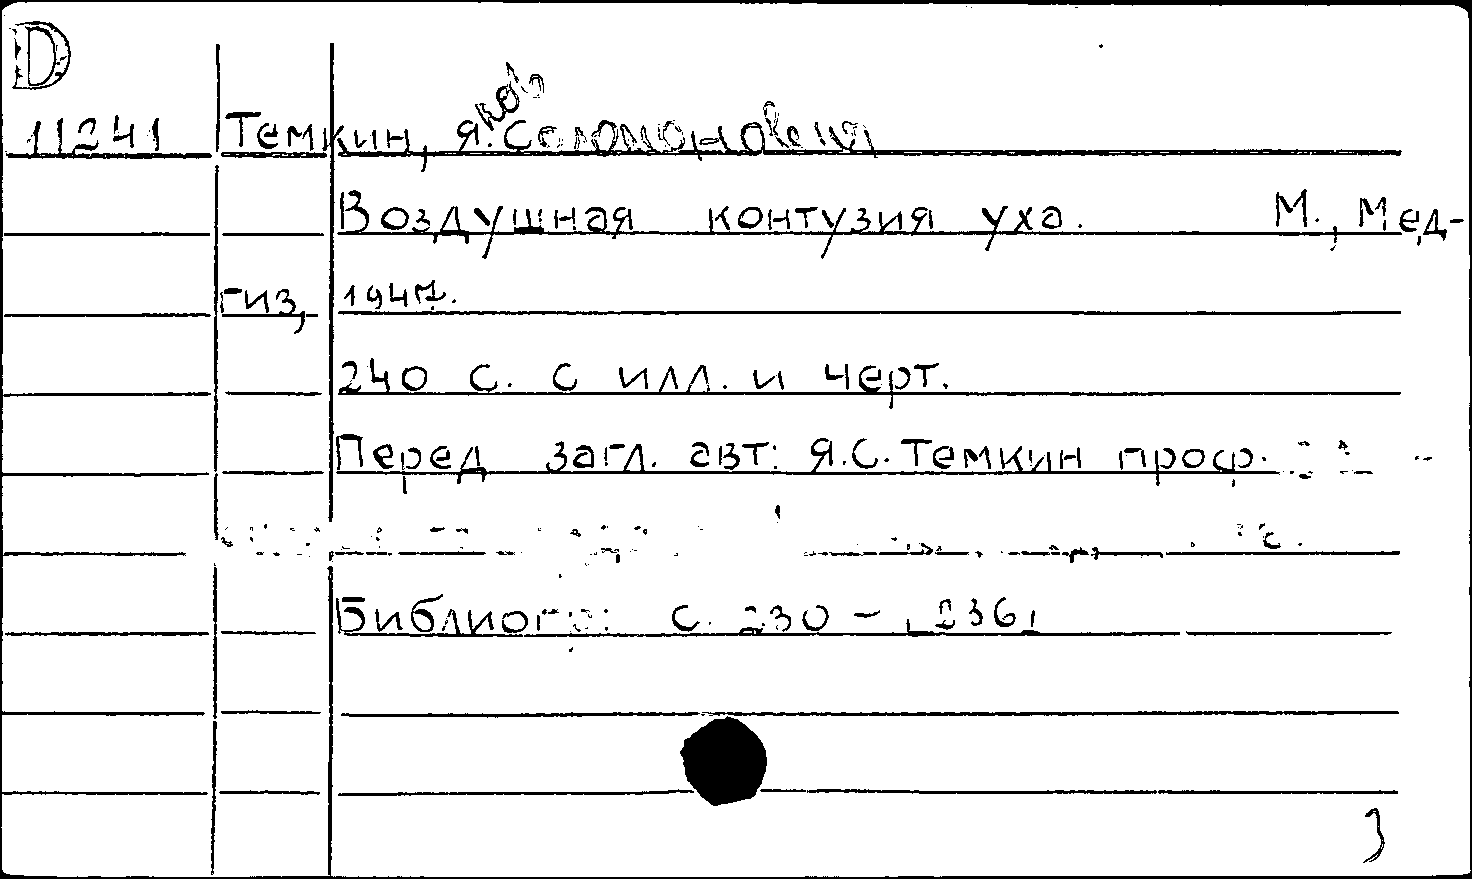 D
11241 Темкин, Яков Соломонович
Воздушная контузия уха. М., Мед-
гиз, 1947.
240 с. с илл. и черт.
Перед загл. авт: Я.С. Темкин проф.
Библиогр: с. 230 – [236]